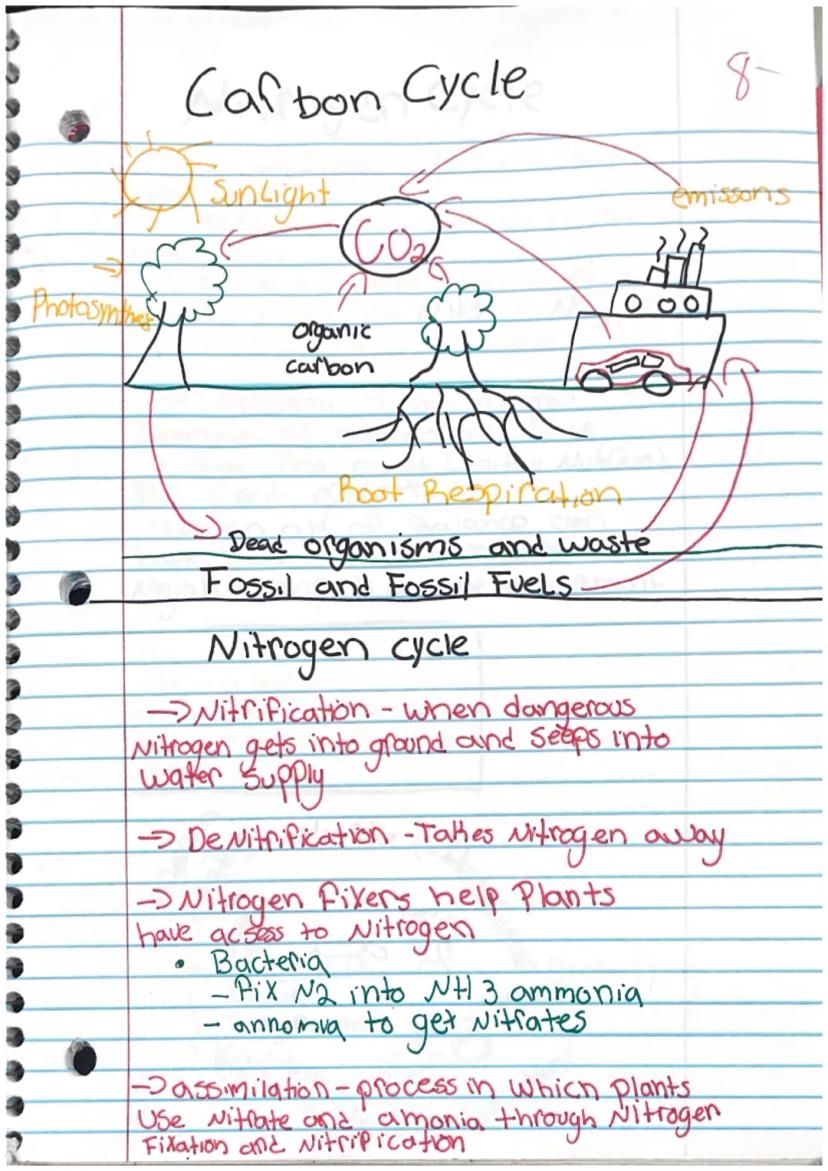 Carbon Cycle
8-
SunLight
emissons
CO₂
Photosynthes
organic
carbon
Root Respiration
Dead organisms and waste
Fossil and Fossil Fuels
Nitrogen cycle
→ Nitrification - when dangerous
Nitrogen gets into ground and seeps into
water supply
→ DeNitrification - Takes Nitrogen away
→ Nitrogen fixers help Plants
have acsess to Nitrogen
• Bacteria
- Fix N2 into NH3 ammonia
- annomia to get Nitrates
→ assimilation - process in which plants
Use Nitrate and amonia through Nitrogen
Fixation and Nitrification